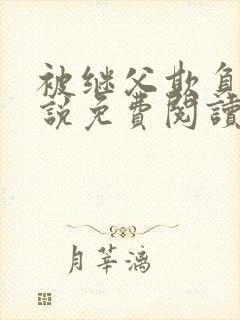 被继父欺负
說免費閱讀
月莘漓